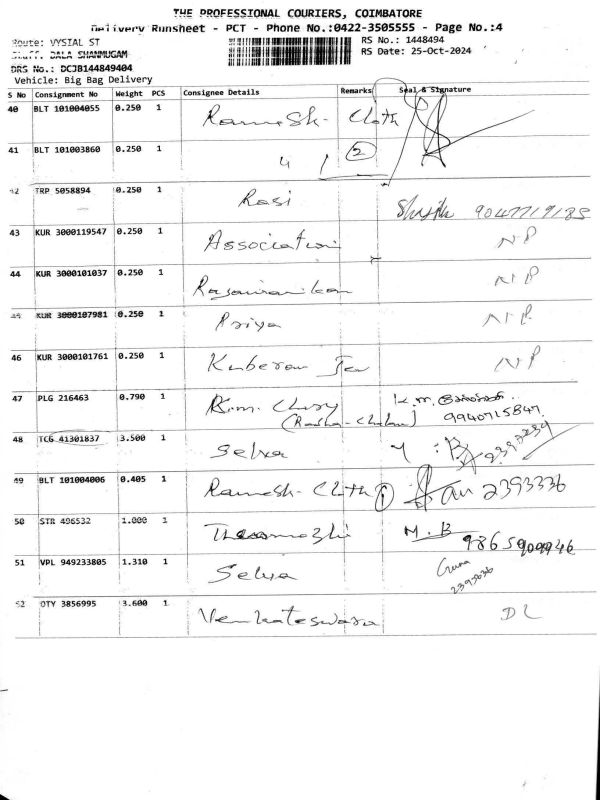 THE PROFESSIONAL COURIERS, COIMBATORE
Delivery Runsheet - PCT - Phone No.:0422-3505555 - Page No.:4
Route: VYSIAL ST
RS No.: 1448494
Staff: BALA SHANMUGAM
RS Date: 25-Oct-2024
DRS No.: DCJB144849404
Vehicle: Big Bag Delivery
S No Consignment No Weight PCS Consignee Details Remarks Seal & Signature
40 BLT 101004055 0.250 1 Ramesh- Cloth
41 BLT 101003860 0.250 1 4 1 2
42 TRP 5058894 0.250 1 Rasi 9047719185
43 KUR 3000119547 0.250 1 Association NP
44 KUR 3000101037 0.250 1 NP
45 KUR 3000107981 0.250 1 Priya NP
46 KUR 3000101761 0.250 1 Kuberan NP
47 PLG 216463 0.790 1 K.m. K.m.
9940715847
48 TCG 41301837 3.500 1 Selva
49 BLT 101004006 0.405 1 Ramesh- Cloth 1 2393336
50 STR 496532 1.000 1 M.B
51 VPL 949233805 1.310 1 Selva Guna
52 OTY 3856995 3.600 1 Venkateswara DL